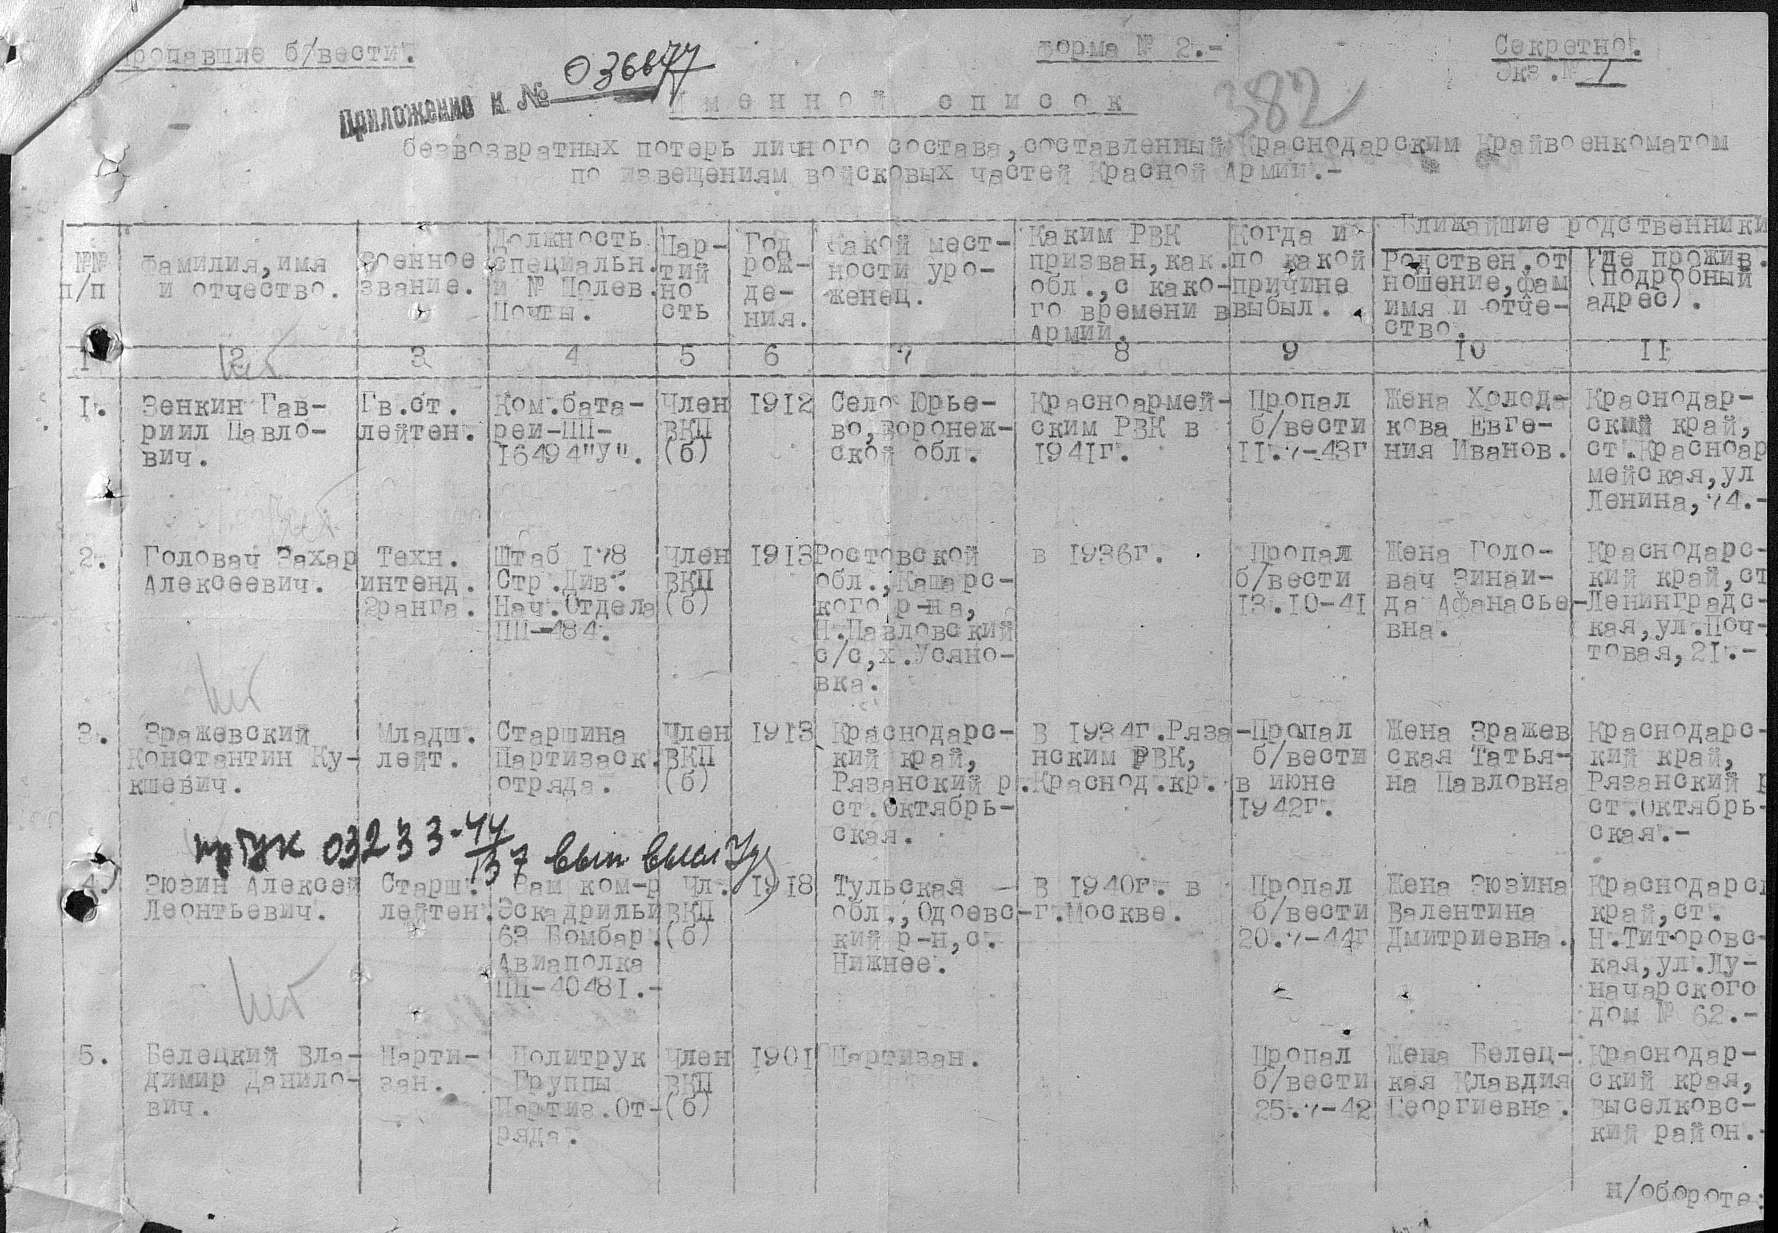 Пропавшие б/вести.
Форма № 2.-
Секретно.
Экз.№ 1
Приложение к №
Именной список
382
безвозвратных потерь личного состава, составленный Краснодарским Крайвоенкоматом
по извещениям войсковых частей Красной Армии.-
№№
п/п
Фамилия, имя
и отчество.
Военное
звание.
Должность
специальн.
и № Полев.
Почты.
Пар-
тий
но
сть
Год
рож-
де-
ния.
Какой мест-
ности уро-
женец.
Каким РВК
призван, как.
обл., с како-
го времени в
Армии.
Когда и
по какой
причине
выбыл.
Ближайшие родственники
Родствен.от
ношение, фам
имя и отче-
ство.
Где прожив.
(подробный
адрес).
1 2 3 4 5 6 7 8 9 10 11
1.
Зенкин Гав-
риил Павло-
вич.
Гв.ст.
лейтен.
Ком.бата-
реи-ПП-
16494"У".
Член
ВКП
(б)
1912
Село Юрье-
во, Воронеж-
ской обл.
Красноармей-
ским РВК в
1941г.
Пропал
б/вести
11.7-43г
Жена Холода-
кова Евге-
ния Иванов.
Краснодар-
ский край,
ст.Красноар
мейская, ул
Ленина, 74.-
2.
Головач Захар
Алексеевич.
Техн.
интенд.
2ранга.
Штаб 178
Стр.Див.
Нач.Отдела
ПП-484.
Член
ВКП
(б)
1913
Ростовской
обл., Кашарс-
кого р-на,
Н.Павловский
с/с, х.Усяно-
вка.
в 1936г.
Пропал
б/вести
13.10-41
Жена Голо-
вач Зинаи-
да Афанасье-
вна.
Краснодарс-
кий край, ст
Ленинградс-
кая, ул.Поч-
товая, 21.-
3.
Зражевский
Константин Ку-
кшевич.
Младш.
лейт.
Старшина
Партизаск.
отряда.
Член
ВКП
(б)
1913
Краснодарс-
кий край,
Рязанский р.
ст.Октябрь-
ская.
В 1934г.Ряза-
нским РВК,
Краснод.кр.
Пропал
б/вести
в июне
1942г.
Жена Зражев
ская Татья-
на Павловна
Краснодарс-
кий край,
Рязанский р
ст.Октябрь-
ская.-
03233-44
4.
Зюзин Алексей
Леонтьевич.
Старш.
лейтен.
Зам ком-р
Эскадрильи
63 Бомбар.
Авиаполка
ПП-40481.-
Чл.
ВКП
(б)
1918
Тульская
обл., Одоевс-
кий р-н, с.
Нижнее.
В 1940г. в
г.Москве.
Пропал
б/вести
20.7-44г
Жена Зюзина
Валентина
Дмитриевна.
Краснодарск
край, ст.
Н.Титоровс-
кая, ул.Лу-
начарского
дом № 62.-
5.
Белецкий Вла-
димир Данило-
вич.
Парти-
зан.
Политрук
Группы
Партиз.От-
ряда.
Член
ВКП
(б)
1901
Партизан.
Пропал
б/вести
25.7-42
Жена Белец-
кая Клавдия
Георгиевна.
Краснодар-
ский края,
Выселковс-
кий район.-
н/обороте: